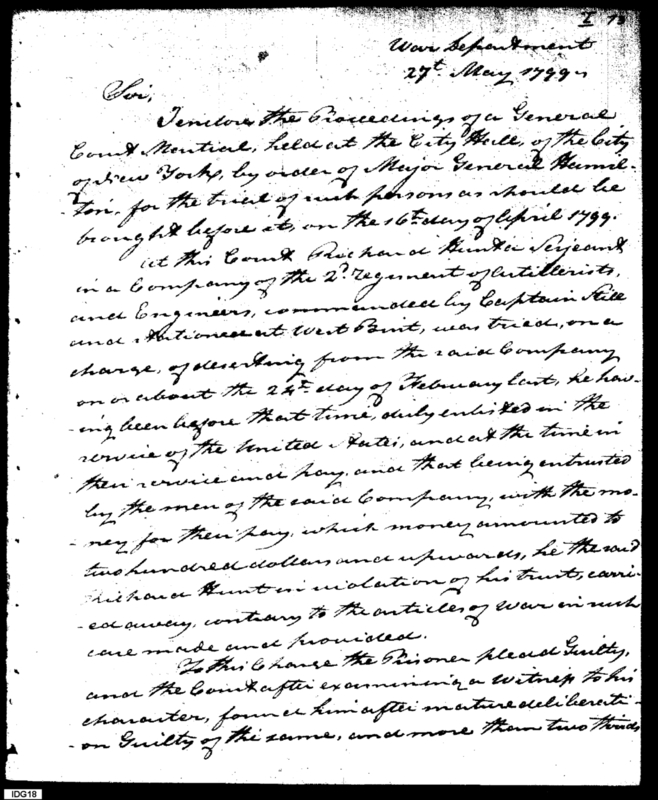 I 13
War Department
27th May 1799
Sir,
I enclose the Proceedings of a General
Court Martial, held at the City Hall, of the City
of New York, by order of Major General Hamil-
-ton, for the trial of such persons as should be
brought before it, on the 16th day of April 1799.
At this Court Richard Hunt a Serjeant
in a Company of the 2d regiment of Artillerists,
and Engineers, commanded by Captain Still
and stationed at West Point, was tried, on a
charge, of deserting from the said Company
on or about the 24th day of February last, he hav-
-ing been before that time, duly enlisted in the
service of the United States, and at the time in
their service and pay, and that being entrusted
by the men of the said Company, with the mo-
-ney for their pay, which money amounted to
two hundred dollars and upwards, he the said
Richard Hunt in violation of his trust, carri-
-ed away, contrary to the articles of War in such
case made and provided.
To this Charge the Prisoner plead Guilty,
and the Court after examining a Witness to his
character, found him after mature deliberati-
-on Guilty of the same, and more than two thirds
IDG18